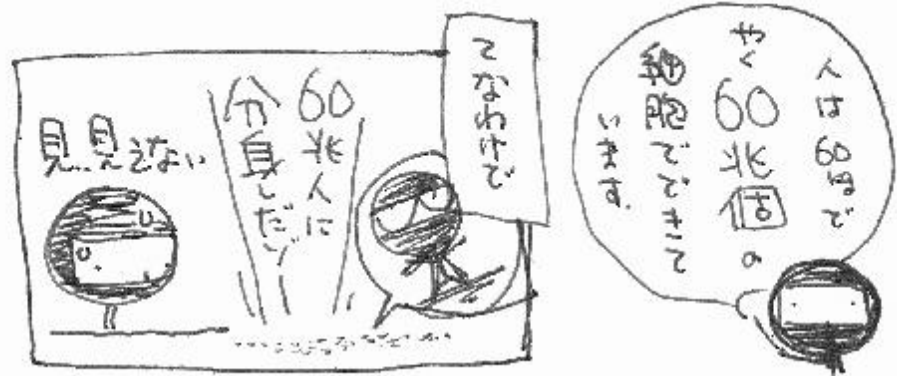 人は60で
やく60兆個の
細胞でできて
います.
てなわけで
60兆人に
分身しだゾ
見...見えない